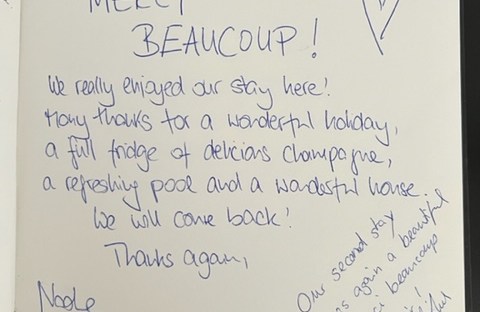 MERCI
BEAUCOUP!
We really enjoyed our stay here!
Many thanks for a wonderful holiday,
a full fridge of delicious champagne,
a refreshing pool and a wonderful house.
We will come back!
Thanks again,
Our second stay
again a beautiful
beaucoup